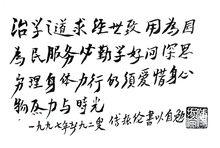 治学之道求经世致用为国
为民服务少勤学好问深思
穷理身体力行的须爱惜身心
物力与时光
一九九七年 九二叟 书以自勉